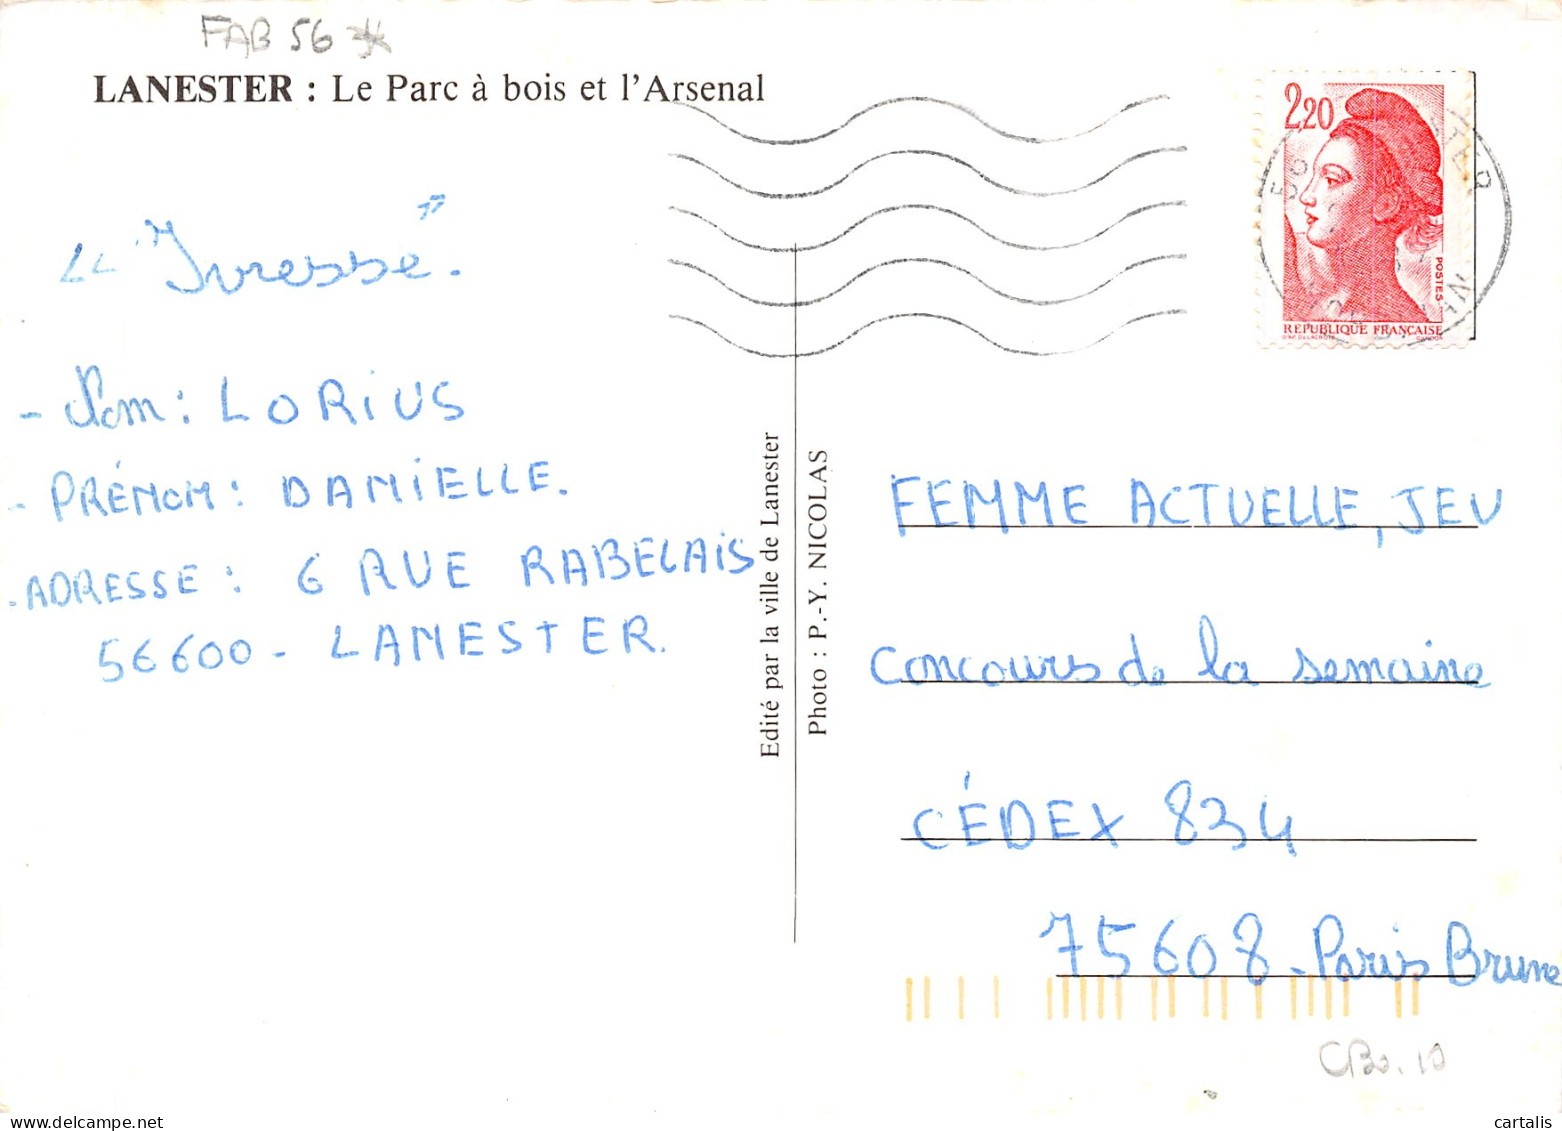 FAB 56
LANESTER : Le Parc à bois et l'Arsenal
2,20
POSTES
RÉPUBLIQUE FRANÇAISE
" Ivresse ".
- Nom : LORIUS
- PRÉNOM : DANIELLE.
- ADRESSE : 6 RUE RABELAIS
56600 - LANESTER.
Edité par la ville de Lanester
Photo : P.-Y. NICOLAS
FEMME ACTUELLE, JEU
Concours de la semaine
CÉDEX 834
75608 - Paris Brune
cartalis